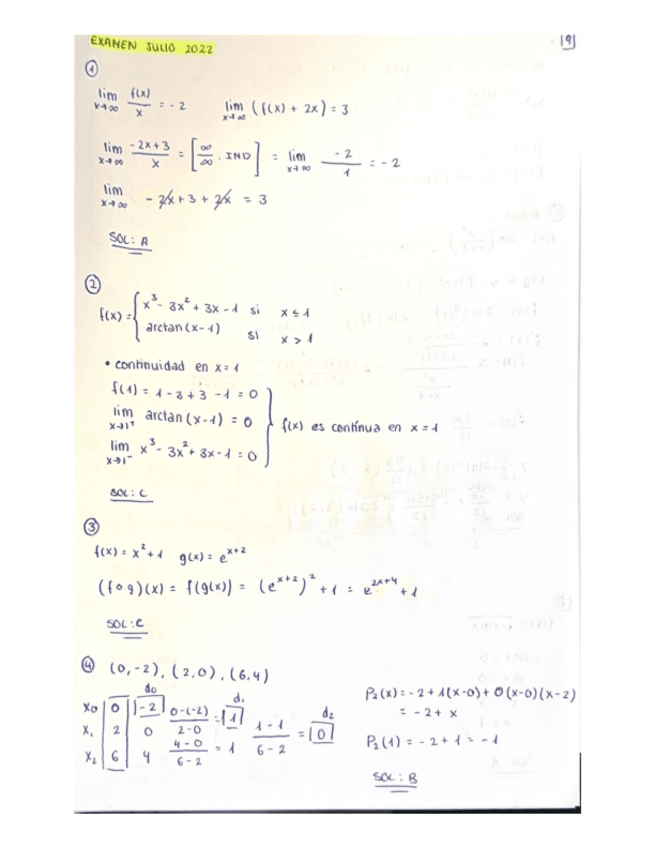 EXAMEN JULIO 2022
19
①
lim x→∞ f(x)/x = -2 lim x→∞ (f(x) + 2x) = 3
lim x→∞ -2x+3/x = [∞/∞ . IND] = lim x→∞ -2/1 = -2
lim x→∞ -2x + 3 + 2x = 3
SOL: A
②
f(x) = { x³ - 3x² + 3x - 1 si x ≤ 1
arctan (x-1) si x > 1
• continuidad en x = 1
f(1) = 1 - 3 + 3 - 1 = 0
lim x→1⁺ arctan (x-1) = 0 } f(x) es contínua en x = 1
lim x→1⁻ x³ - 3x² + 3x - 1 = 0
SOL: C
③
f(x) = x² + 1 g(x) = e^x+2
(f o g)(x) = f(g(x)) = (e^x+2)² + 1 = e^2x+4 + 1
SOL: C
④ (0,-2), (2,0), (6,4)
d0 d1 d2
x0 0 -2 0-(-2)/2-0 = 1 1-1/6-2 = 0
x1 2 0 4-0/6-2 = 1
x2 6 4
P2(x) = -2 + 1(x-0) + 0(x-0)(x-2)
= -2 + x
P2(1) = -2 + 1 = -1
SOL: B